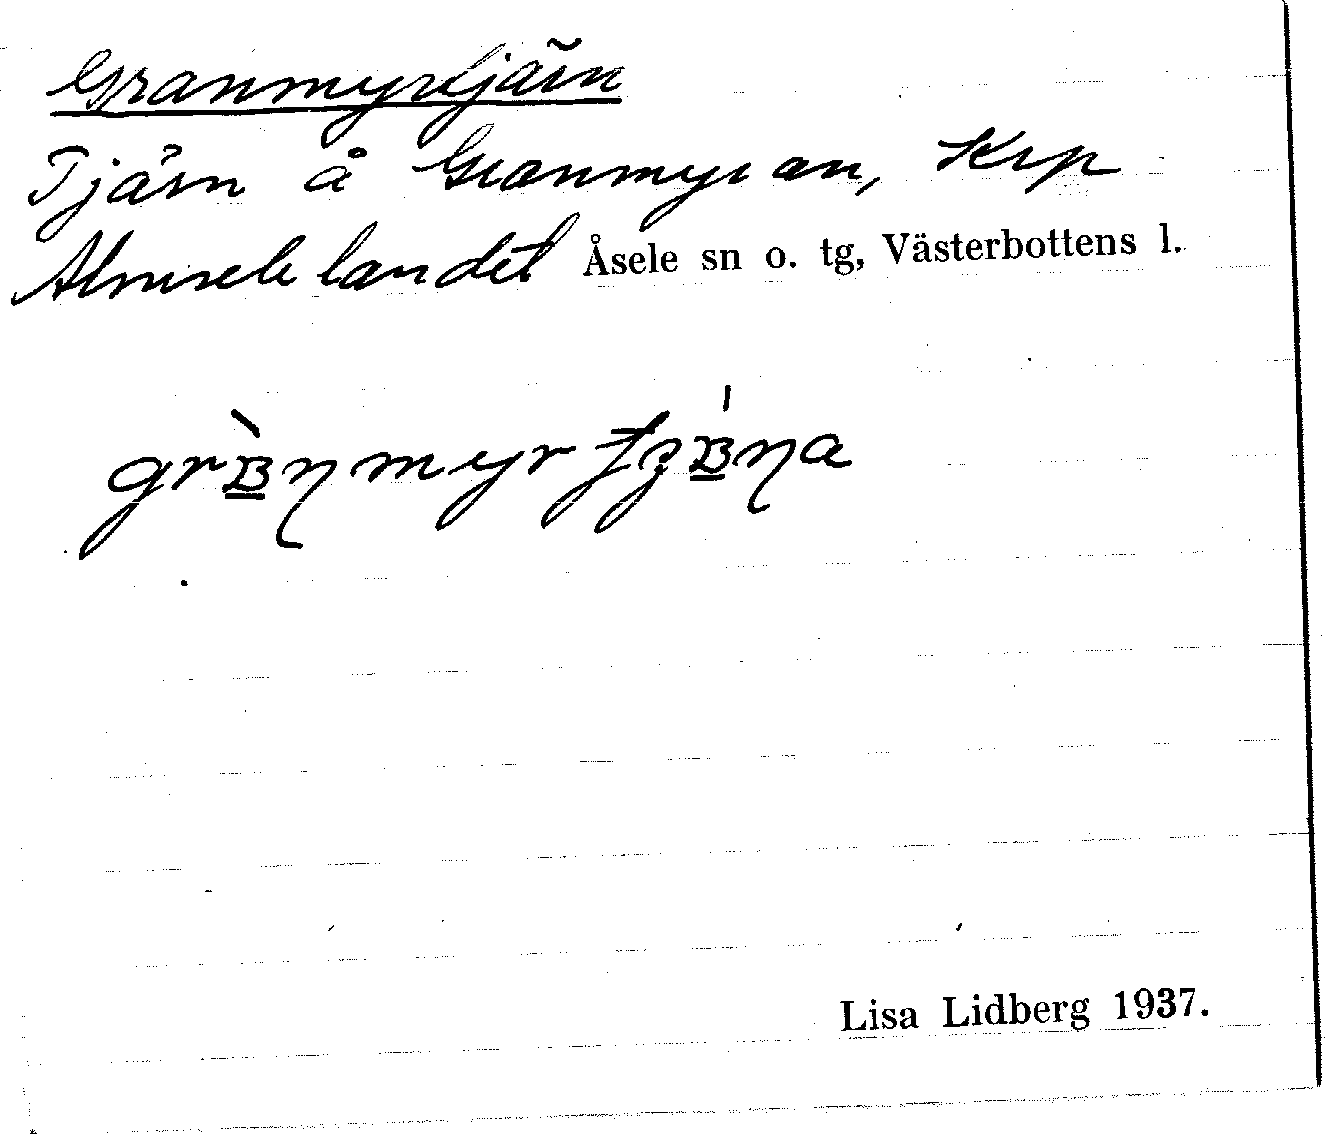 Granmyrtjärn
Tjärn å Granmyran, Krp
Almselelandet Åsele sn o. tg, Västerbottens l.
Lisa Lidberg 1937.